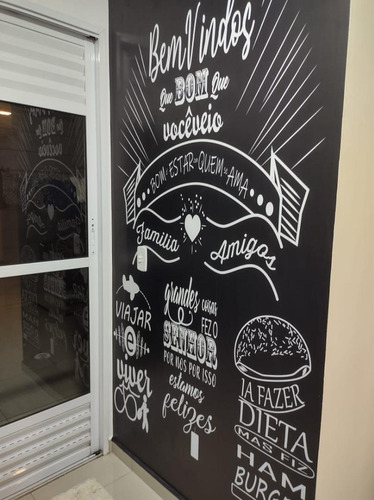 BemVindos
Que BOM Que
vocêveio
BOM ESTAR QUEM AMA
Família
Amigos
VIAJAR
e
viver
grandes coisas
FEZ O
SENHOR
POR NÓS POR ISSO
estamos
felizes
IA FAZER
DIETA
MAS FIZ
HAM
BURG